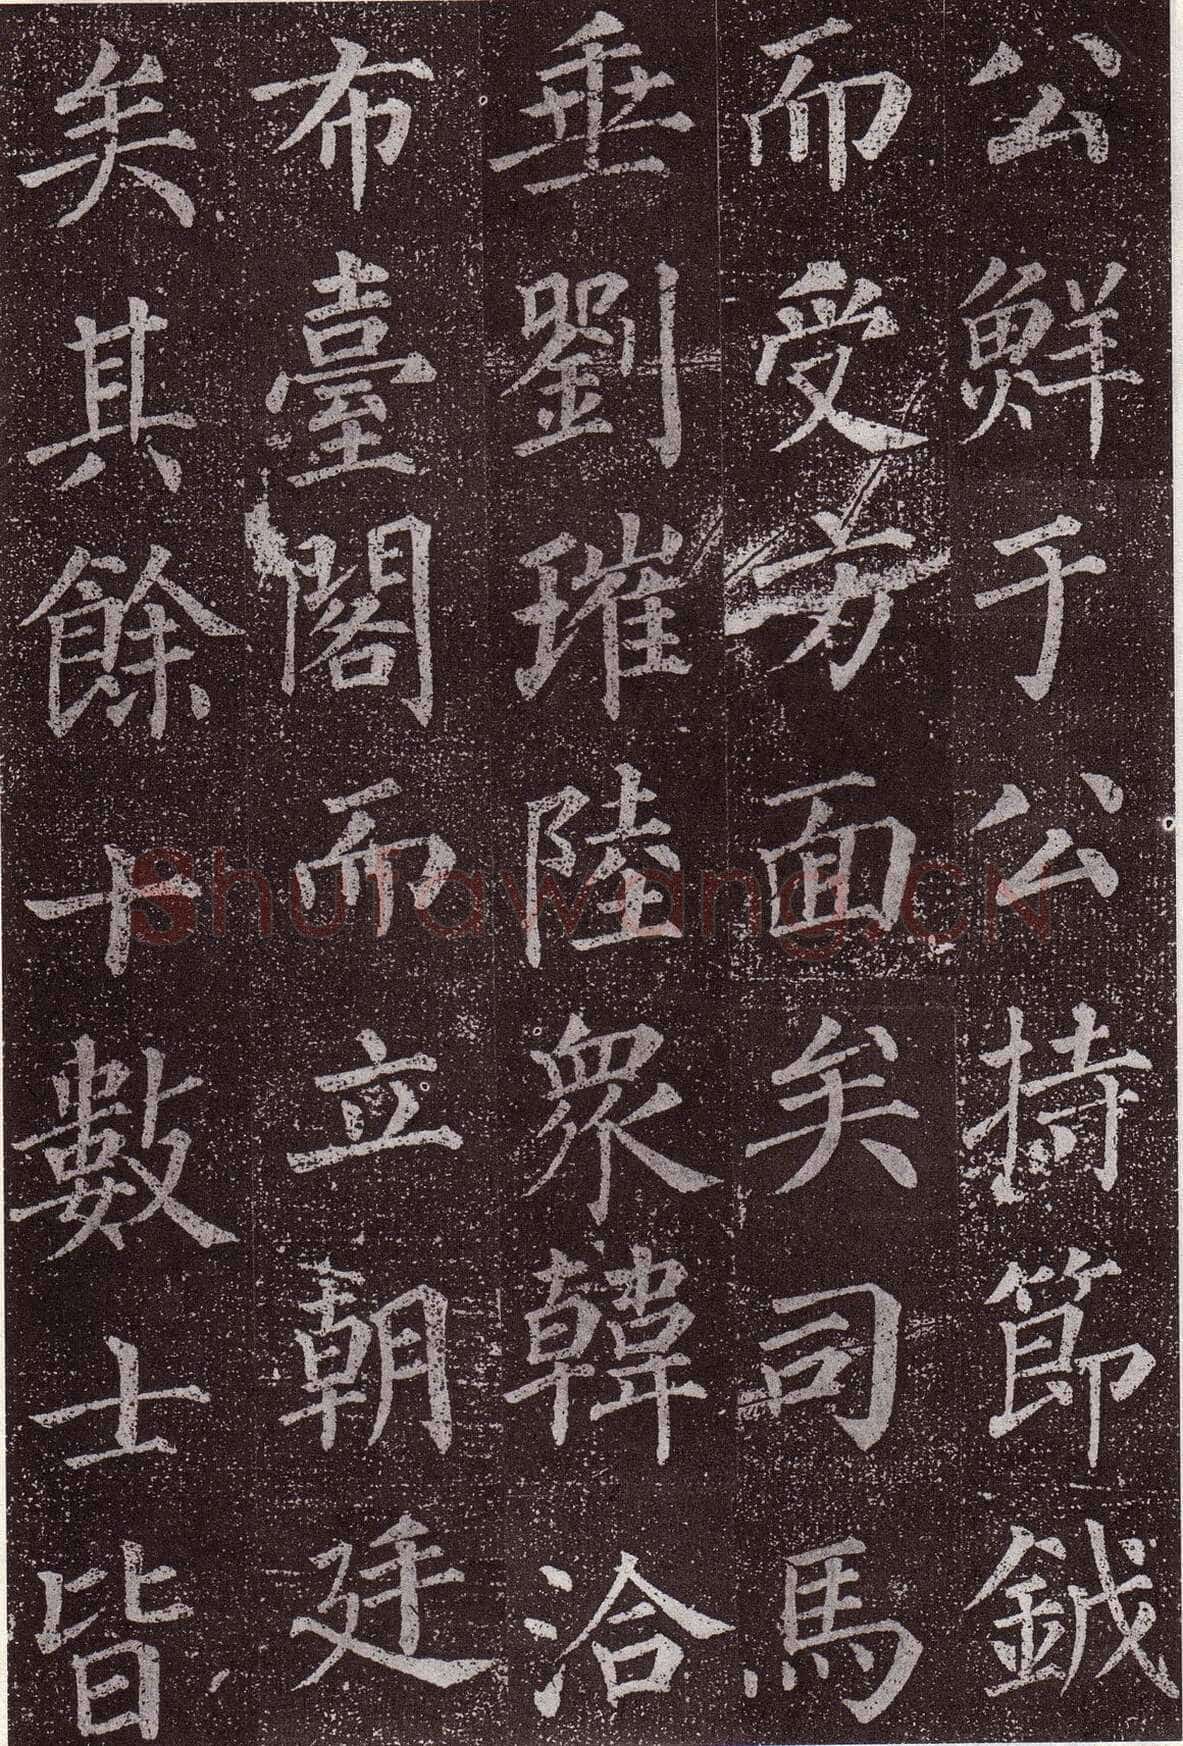 公鮮于公持節鉞
而受方面矣司馬
垂劉璀陸衆韓洽
布臺閣而立朝廷
矣其餘十數士皆
Shufawang.CN